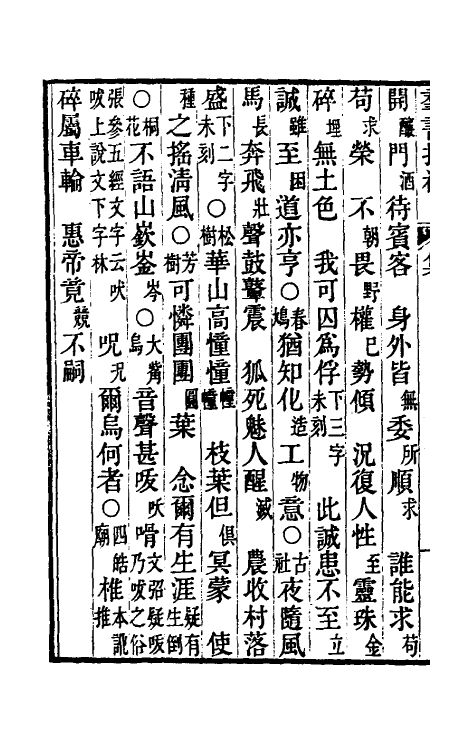 開釀門酒待賓客　身外皆無委所順求　誰能求苟
苟求榮　不朝畏野權已勢傾　況復人性至靈珠金
碎埋無土色　我可囚為俘下三字未刻　此誠患不至立
誠雖至困道亦亨○春鳩猶知化造工物意○古社夜隨風
馬長奔飛壯聲鼓鼙震　狐死魅人醒滅　農收村落
盛下二字未刻　○松樹華山高憧憧幢幢　枝葉但俱冥蒙　使
種之搖清風○芳樹可憐團團圓葉　念爾有生涯疑有生倒
○桐花不語山嶔崟岑○大觜烏音聲甚吠　文弨疑乃之俗
張參五經文字云吠上說文下字林　呪況爾烏何者○四皓廟　椎本訛推
碎屬車輪　惠帝竟競不嗣